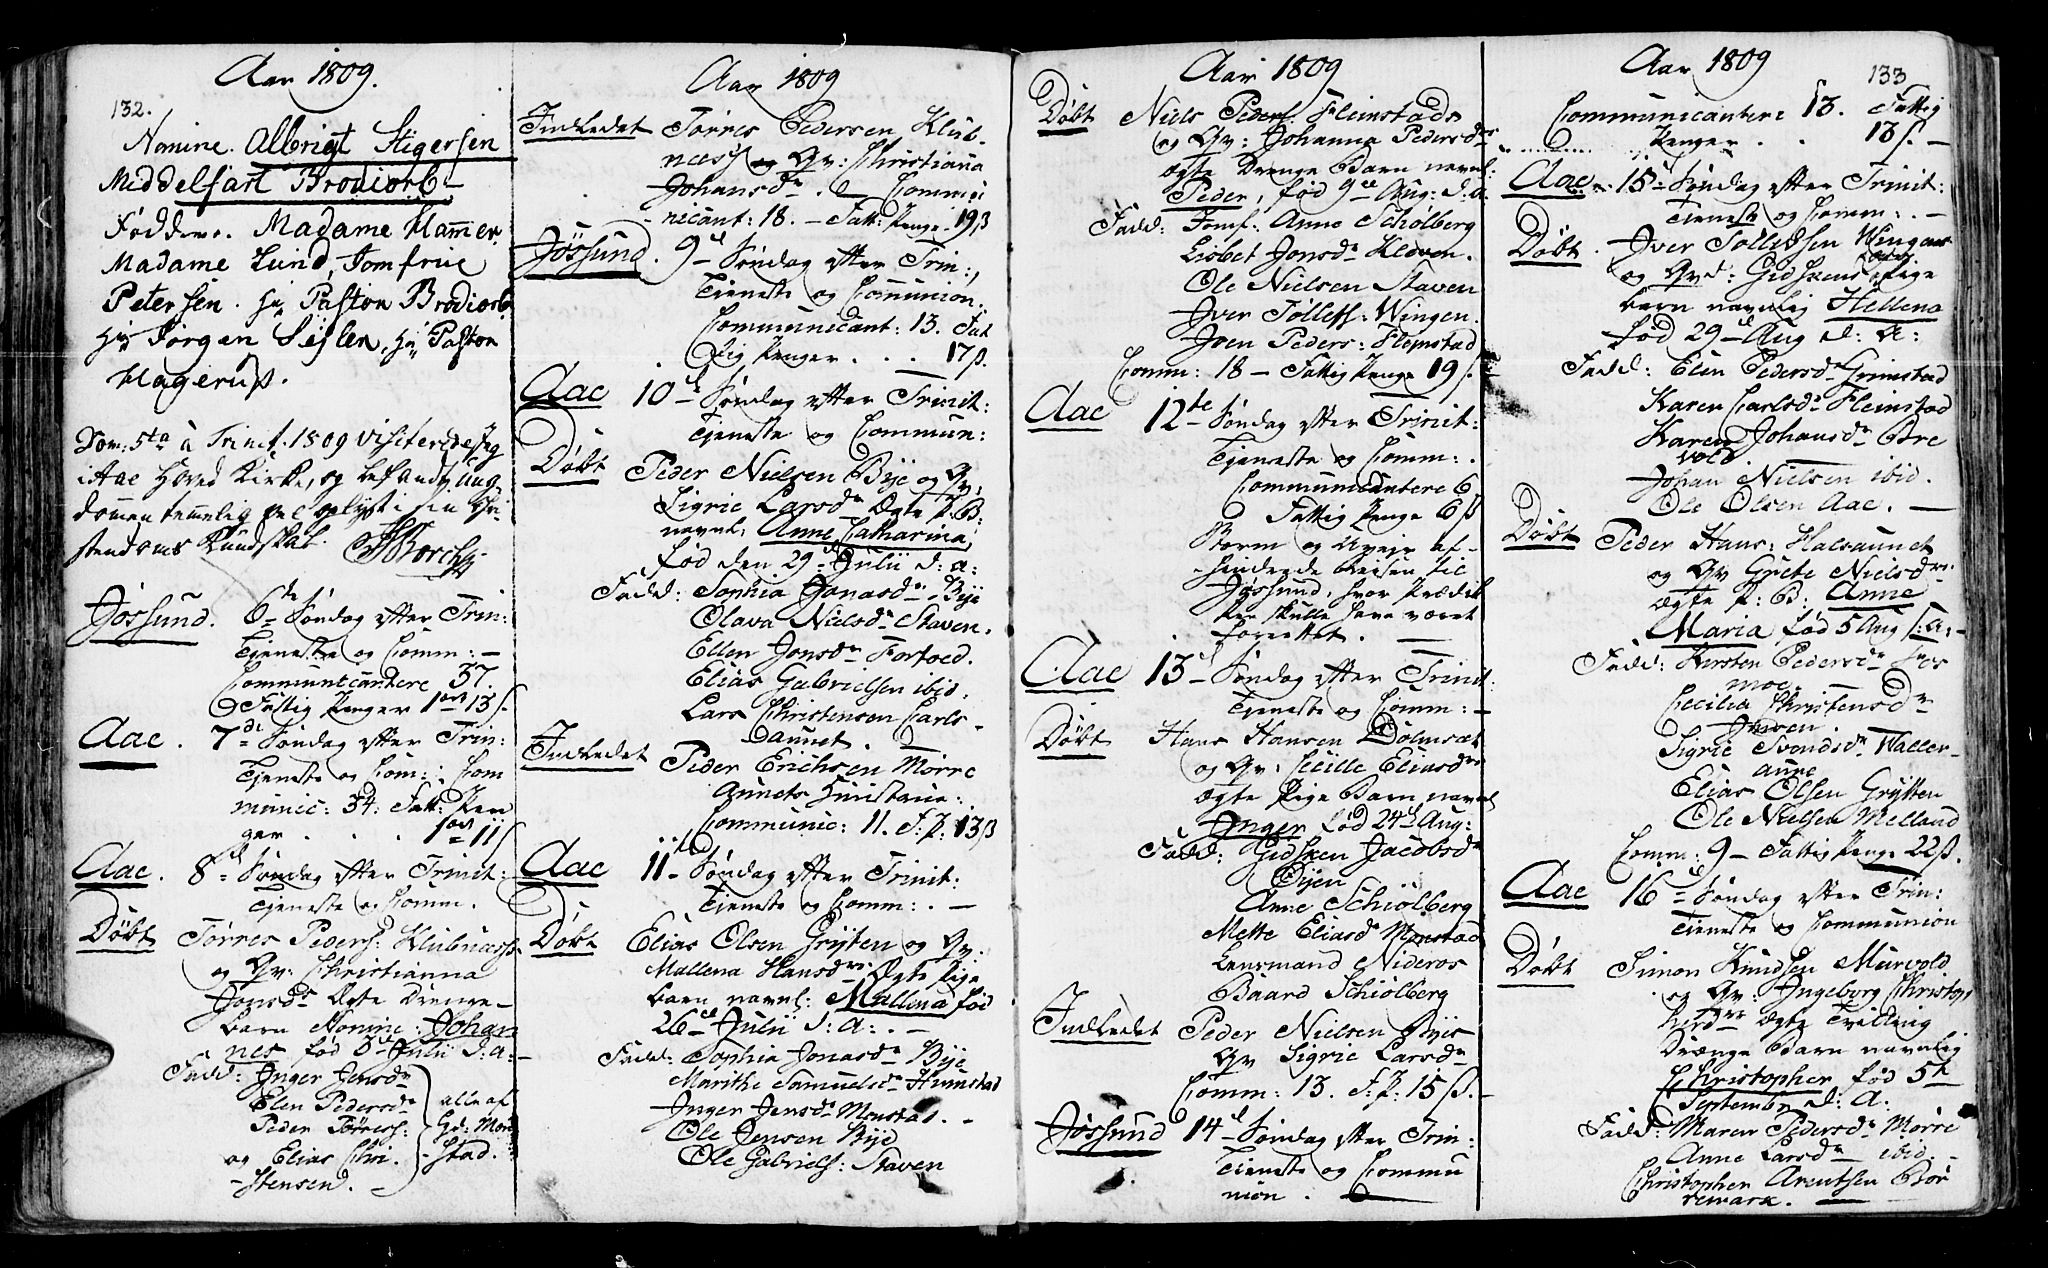 Aar 1809.
132.
Nomine. Albrigt Stigersen
Middelfart Brodiorb
Föddere. Madame Hamer
Madame Lund, Jomfrue
Petersen. Hr Pastor Brodiorb
Hr Jörgen Sislen, Hr Pastor
Hagerup.
Dom: 5ta a Trinit. 1809 visiterede jeg
i Aae Hoved Kirke, og befandt Ung
domen temmelig vel oplyst i sin Chri
stendoms Kundskab. Borch
Jössund. 6te Söndag efter Trin:
Tieneste og Comm: –
Communicantere 37.
Fattig Penger 1 ort 13 s.
Aae. 7de Söndag efter Trin:
Tieneste og Com: Com
munic: 34: Fatt: Pen
ger . . . 1 ort 11 s
Aae. 8de Söndag efter Trinit:
Tieneste og Comm.
Döbt Törres Peders: Klubnæss
og Qv: Christianna
Jonsdr Ægte Drenge
barn Nomine: Johan
nes föd 3de Julii d: a: –
Fadd: Inger Jensdr
Elen Pedersdr
Peder Törress:
og Elias Chri
stensen. –
alle af
Gd: Mon
stad.
Aar 1809
Indledet Törres Pedersen Klub
næss og Qv: Christiana
Johansdr. – Commu
nicant: 18. – Fatt: Penge 19 ß
Jössund. 9de Söndag efter Trin:,
Tieneste og Communion.
Communicant: 13. Fat
tig Penger . . . 17 s.
Aac 10de Söndag efter Trinit:
Tjeneste og Commun:
Döbt Peder Nielsen Bye og Qv:
Sigric Larsdr Ægte P: B:
navnl: Anne Catharina,
föd den 29de Julii d: a:
Fadd: Sophia Jonasdr Bye
Olava Nielsdr Staven.
Ellen Jonsdr Fortoed.
Elias Gabrielsen ibid.
Lars Christensen Carls
aunet.
Indledet Peder Erichsen Mörre
Aunets Huustrue.
Communic: 11. F: P: 13 ß
Aac 11te Söndag efter Trinit:
Tieneste og Comm: . –
Döbt Elias Olsen Grÿten og Qv:
Mallena Hansdr Ægte Pige
barn navnl: Mallena föd
26de Julii d: a: . –
Fadd: Sophia Jonasdr Bÿe
Marithe Samuelsdr Humstad
Inger Jensdr Monstad. –
Ole Jensen Bÿe
Ole Gabriels: Staven
Aar 1809
Döbt Niels Peders. Fleinstads
og Qv: Johanna Pedersdrs
ægte Drenge Barn navnl:
Peder, föd 9de Aug: d: a.
Fadd: Jomf: Anne Schölberg
Lisbet Jonsdr Kloven.
Ole Nielsen Staven
Iver Tollefs: Wingen.
Joen Peders: Flemstad
Comm: 18 – Fattig Penge 19 s.
Aac 12te Söndag efter Trinit:
Tieneste og Comm: .
Communicantere 6
Fattig Penge 6 ß
Storm og Uveir af
hindrede Reisen til
Jössund, hvor Prædik
ken skulle have været
forrettet. –
Aac 13de Söndag efter Trinit:
Tieneste og Comm: –
Döbt Hans Hansen Dolmsæt
og Qv: Cecille Eliasdrs
Ægte Pige Barn navnl
Inger föd 24de Aug:
Fadd: Gidsken Jacobsdr
Öÿen
Anne Schiölberg
Mette Eliasdr Monstad
Lensmand Nideros
Baard Schiölberg
Indledet Peder Nielsen Byis
Qv Sigric Larsdr
Comm: 13. F: P: 15 ß. –
Jössund 14de Söndag efter Trin:
Tieneste og Commu
nion . –
Aar 1809
133
Communicantere 13. Fattig
Penger . . 13 s. –
Aac 15de Söndag efter Trinit:
Tieneste og Comm: . –
Döbt. Iver Tollefsen Wingens
og Qvd: Gidskens ægte Pige
barn navnlig Hellena
föd 29de Aug d: a:
Fadd: Elen Pedersdr Grimstad
Karen Carlsdr Fleinstad
Karen Johansdr Bre
vold
Johan Nielsen ibid.
Ole Olsen Aac. –
Döbt Peder Hans: Halsaunet
og Qv Grete Nielsdrs:
Ægte P: B: Anne
Maria föd 5 Aug d: a: –
Fadd: Kirsten Pedersdr Fos
moe. –
Cecilia Christensdr
Sigric Svendsdr Waller
aune
Elias Olsen Grÿtten
Ole Nielsen Melland
Comm: 9 – Fattig Penge 22 ß.
Aac 16de Söndag efter Trin:
Tieneste og Communion
Döbt Simon Knudsen Murvold
og Qv: Ingeborg Christop
hersdrs Ægte Tvilling
Drænge Barn navnlig
Christopher föd 5te
Septembr d: A:
Fadd: Maren Pedersdr Mörre
Anne Larsdr ibid. –
Christopher Arentsen Bör
remark. –